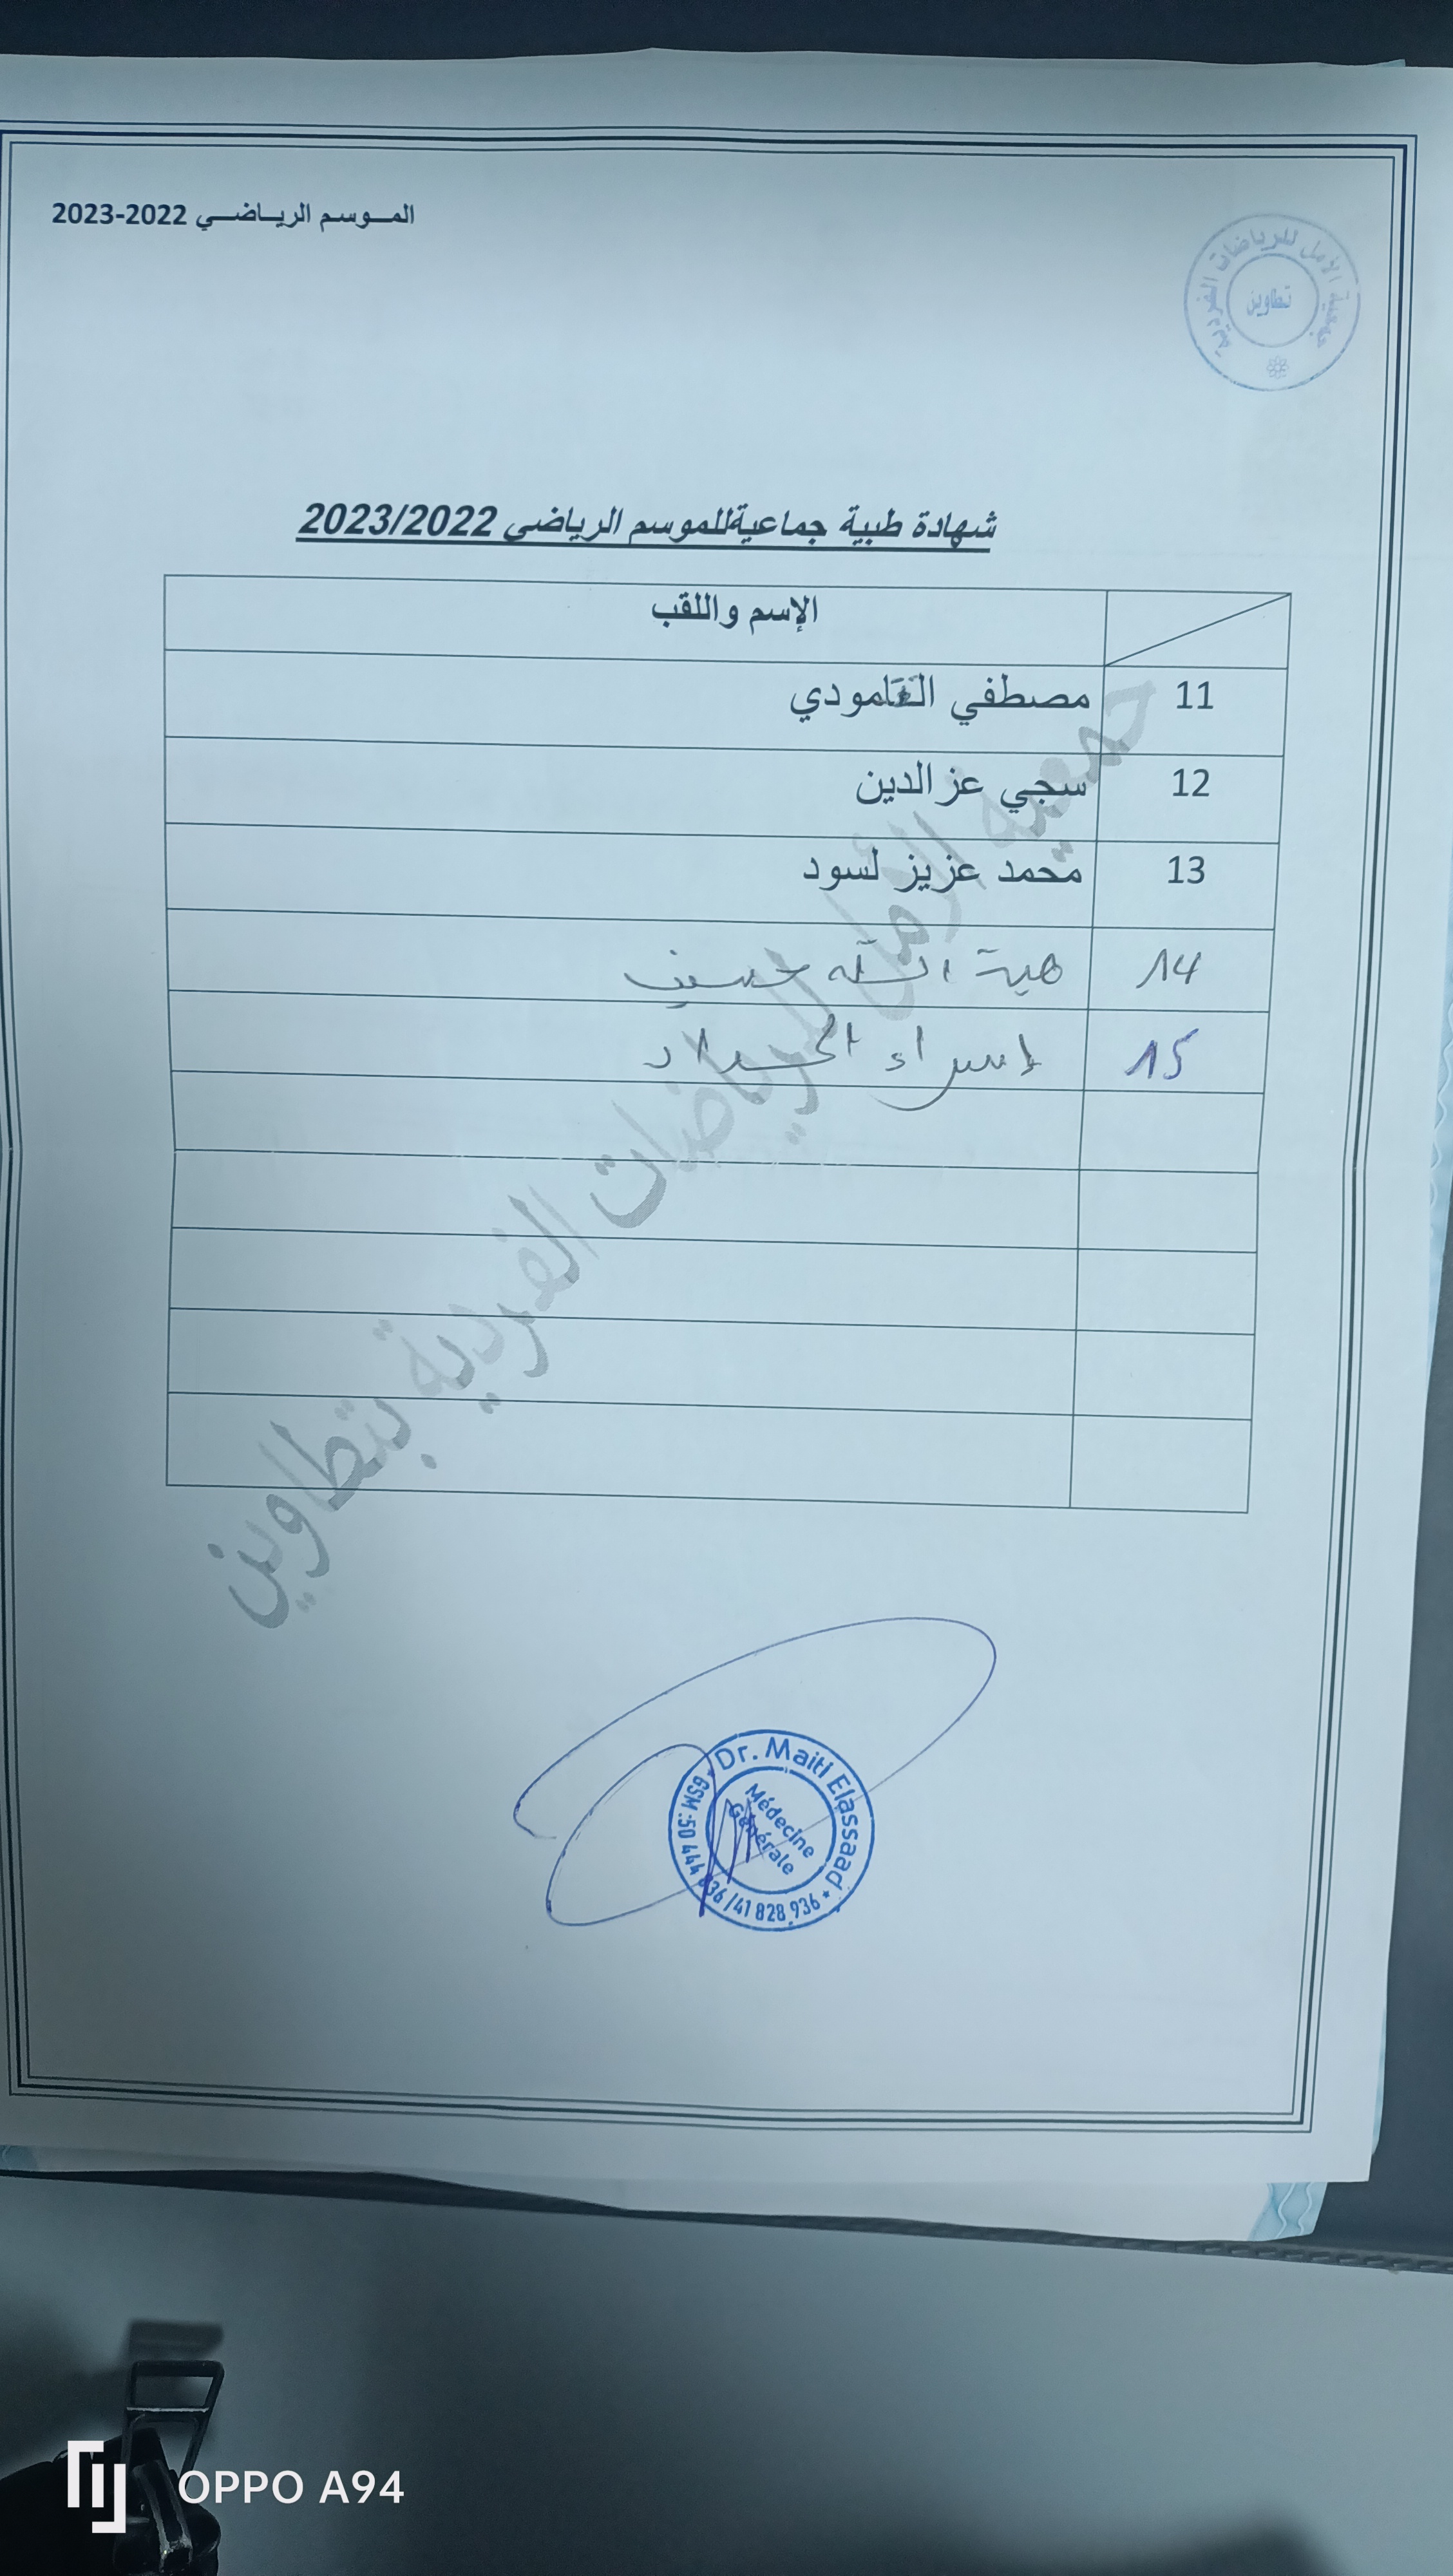 الموسم الرياضي 2022-2023
جمعية الأمل للرياضات الفردية
تطاوين
شهادة طبية جماعيةللموسم الرياضي 2023/2022
الإسم واللقب
11 مصطفي
12 سجي عز الدين
13 محمد عزيز لسود
14 هبة الله حسين
15 إسراء الحداد
جمعية الأمل للرياضات الفردية بتطاوين
Dr. Maiti Elassaad
Médecine
Générale
GSM :50 444 836 /41 828 936
OPPO A94